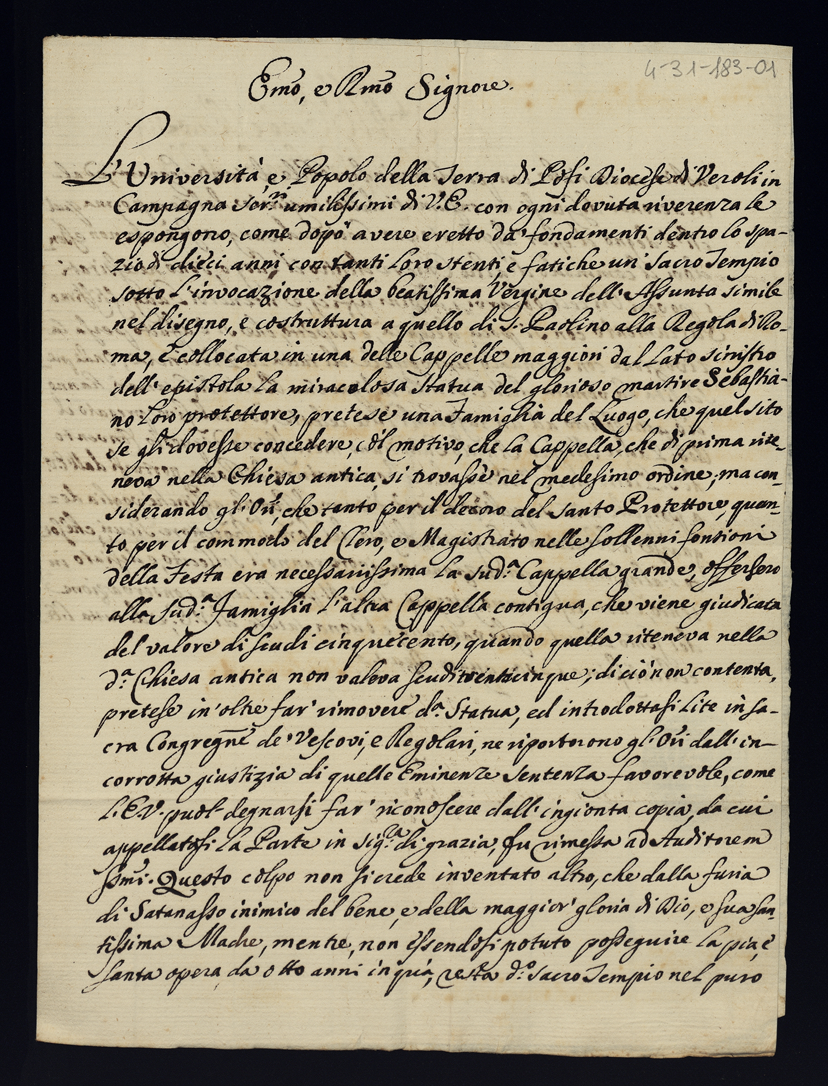 4-31-183-01
Emo, e Rmo Signore.
L'Università e Popolo della Terra di Pofi Diocese di Veroli in
Campagna Ser.ri umilissimi di V.E. con ogni dovuta riverenza le
espongono, come dopò avere eretto da' fondamenti dentro lo spa-
zio di dieci anni con tanti loro stenti, e fatiche un' Sacro Tempio
sotto l'invocazione della beatissima Vergine dell' Assunta simile
nel disegno, e costruttura a quello di S. Paolino alla Regola di Ro-
ma, e collocata in una delle Cappelle maggiori dal lato sinistro
dell' epistola la miracolosa Statua del glorioso martire Sebastia-
no loro protettore, pretese una Famiglia del Luogo, che quel sito
se gli dovesse concedere, col motivo, che la Cappella, che di prima rite-
neva nella Chiesa antica, si trovasse nel medesimo ordine, ma con-
siderando gl'Ori, che tanto per il decoro del Santo Protettore, quan-
to per il commodo del Clero, e Magistrato nelle sollenni fonsioni
della Festa era necessariissima la sud.a Cappella grande, offersero
alla sud.a Famiglia l'altra Cappella contigua, che viene giudicata
del valore di scudi cinquecento, quando quella riteneva nella
d.a Chiesa antica non valeva scudi venticinque; di ciò non contenta,
pretese in' oltre far' rimovere d.a Statua, ed introdottasi Lite in Sa-
cra Congregne de' Vescovi, e Regolari, ne riportorono gl'Ori dall' in-
corrotta giustizia di quelle Eminenze sentenza favorevole, come
l'E.V. puol degnarsi far' riconoscere dall' ingionta copia, da cui
appellatasi la Parte in sig.ra di grazia, fu rimessa ad Auditorem
SSmi. Questo colpo non si crede inventato altro, che dalla furia
di Satanasso inimico del bene, e della maggior' gloria di Dio, e sua San-
tissima Madre, mentre, non essendosi potuto posseguire la pia, e
santa opera da otto anni in quà, resta d.o Sacro Tempio nel puro